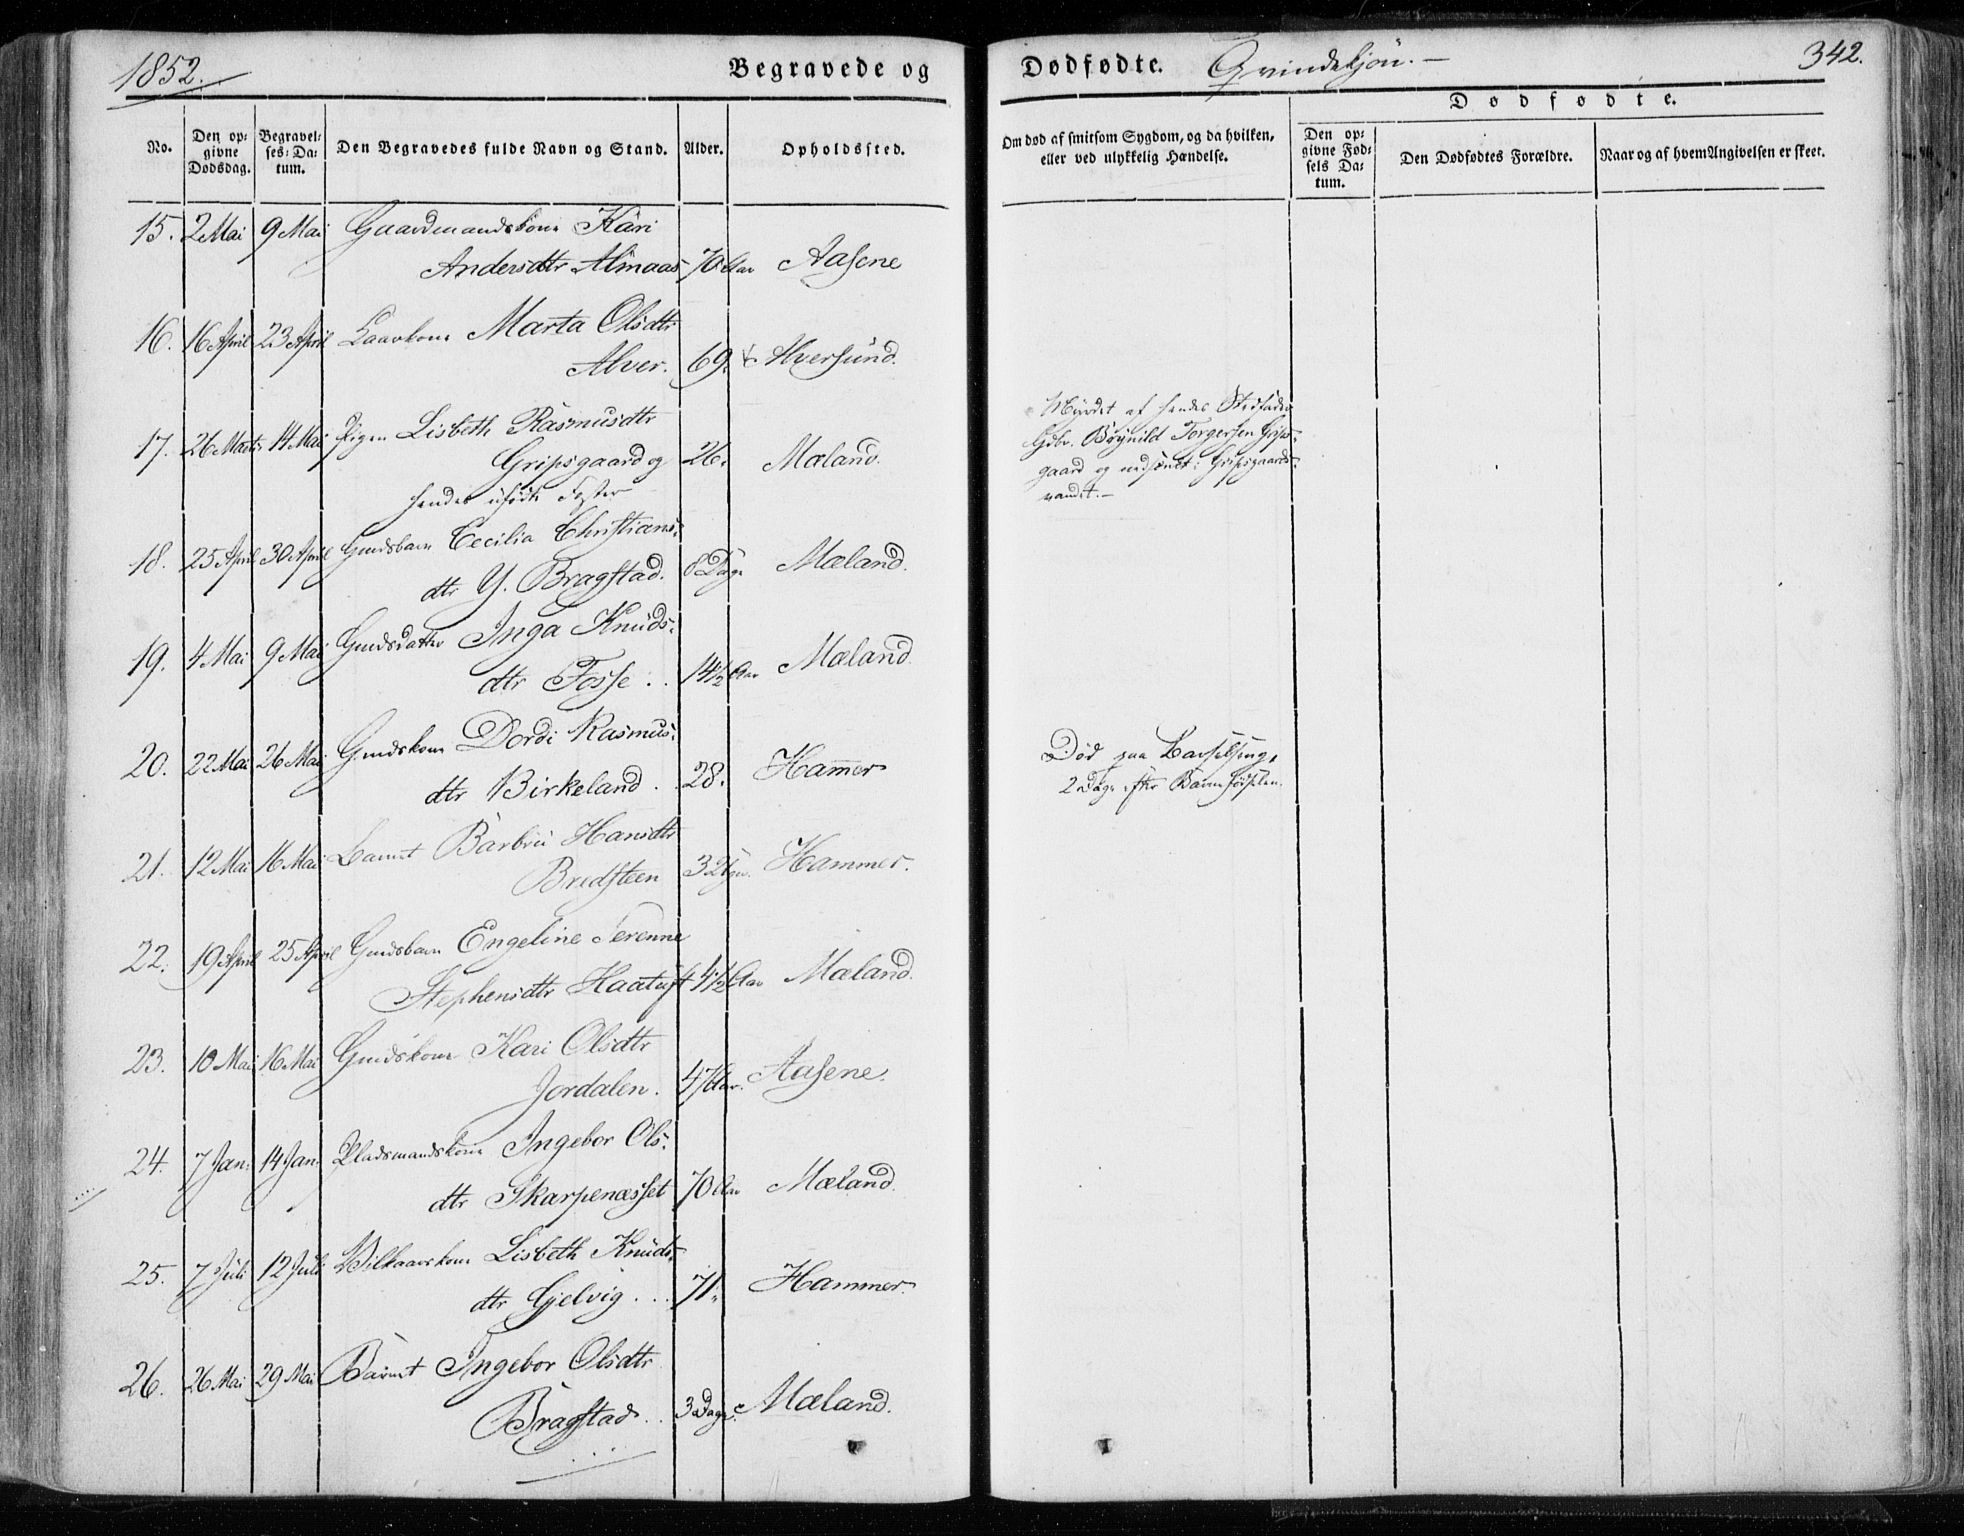 1852.
Begravede og
Dødfødte. Qvindekjøn. —
342.
No.
Den op-
givne
Dødsdag.
Begravel-
ses-Da-
tum.
Den Begravedes fulde Navn og Stand.
Alder.
Opholdssted.
Om død af smitsom Sygdom, og da hvilken,
eller ved ulykkelig Hændelse.
Dødfødte.
Den op-
givne Fød-
sels Da-
tum.
Den Dødfødtes Forældre.
Naar og af hvem Angivelsen er skeet.
15. 2 Mai 9 Mai Gaardmandskone Kari
Andersdtr Almaas 70 Aar Aasene
16. 16 April 23 April Kaarkone Marta Olsdtr
Alver. 69. Alversund.
17. 26 Marts 14 Mai Pigen Lisbeth Rasmusdtr
Gripsgaard og 26. Mæland.
hendes ufødte Foster
Myrdet af hendes Stedfader
Gdbr. Brynild Torgersen Grips-
gaard og nedsænket i Gripsgaards-
vandet. —
18. 25 April 30 April Gmdsbarn Cecilia Christians-
dtr Y. Bragstad. 8 Dage Mæland.
19. 4 Mai 9 Mai Gmdsdatter Inga Knuds-
dtr Fosse .. 14 1/2 Aar Mæland.
20. 22 Mai 26 Mai Gmdskone Dordi Rasmus-
dtr Birkeland . 28. Hammer
Død paa Barselseng,
2 Dage efter Barnefødselen.
21. 12 Mai 16 Mai Barnet Barbru Hansdtr
Bredsteen 3 Uger. Hammer.
22. 19 April 25 April Gmdsbarn Engeline Serenne
Stephensdtr Haatuft 4 1/2 Aar Mæland.
23. 10 Mai 16 Mai Gmdskone Kari Olsdtr
Jordalen. 47 Aar. Aasene.
24. 7 Jan. 14 Jan. Pladsmandskone Ingebor Ols-
dtr Skarpenæsset 70 Aar Mæland.
25. 7 Juli 12 Juli Vilkaarskone Lisbeth Knuds-
dtr Gjelvig ... 71. Hammer.
26. 26 Mai 29 Mai Barnet Ingebor Olsdtr
Bragstad .. 3 Dage. Mæland.